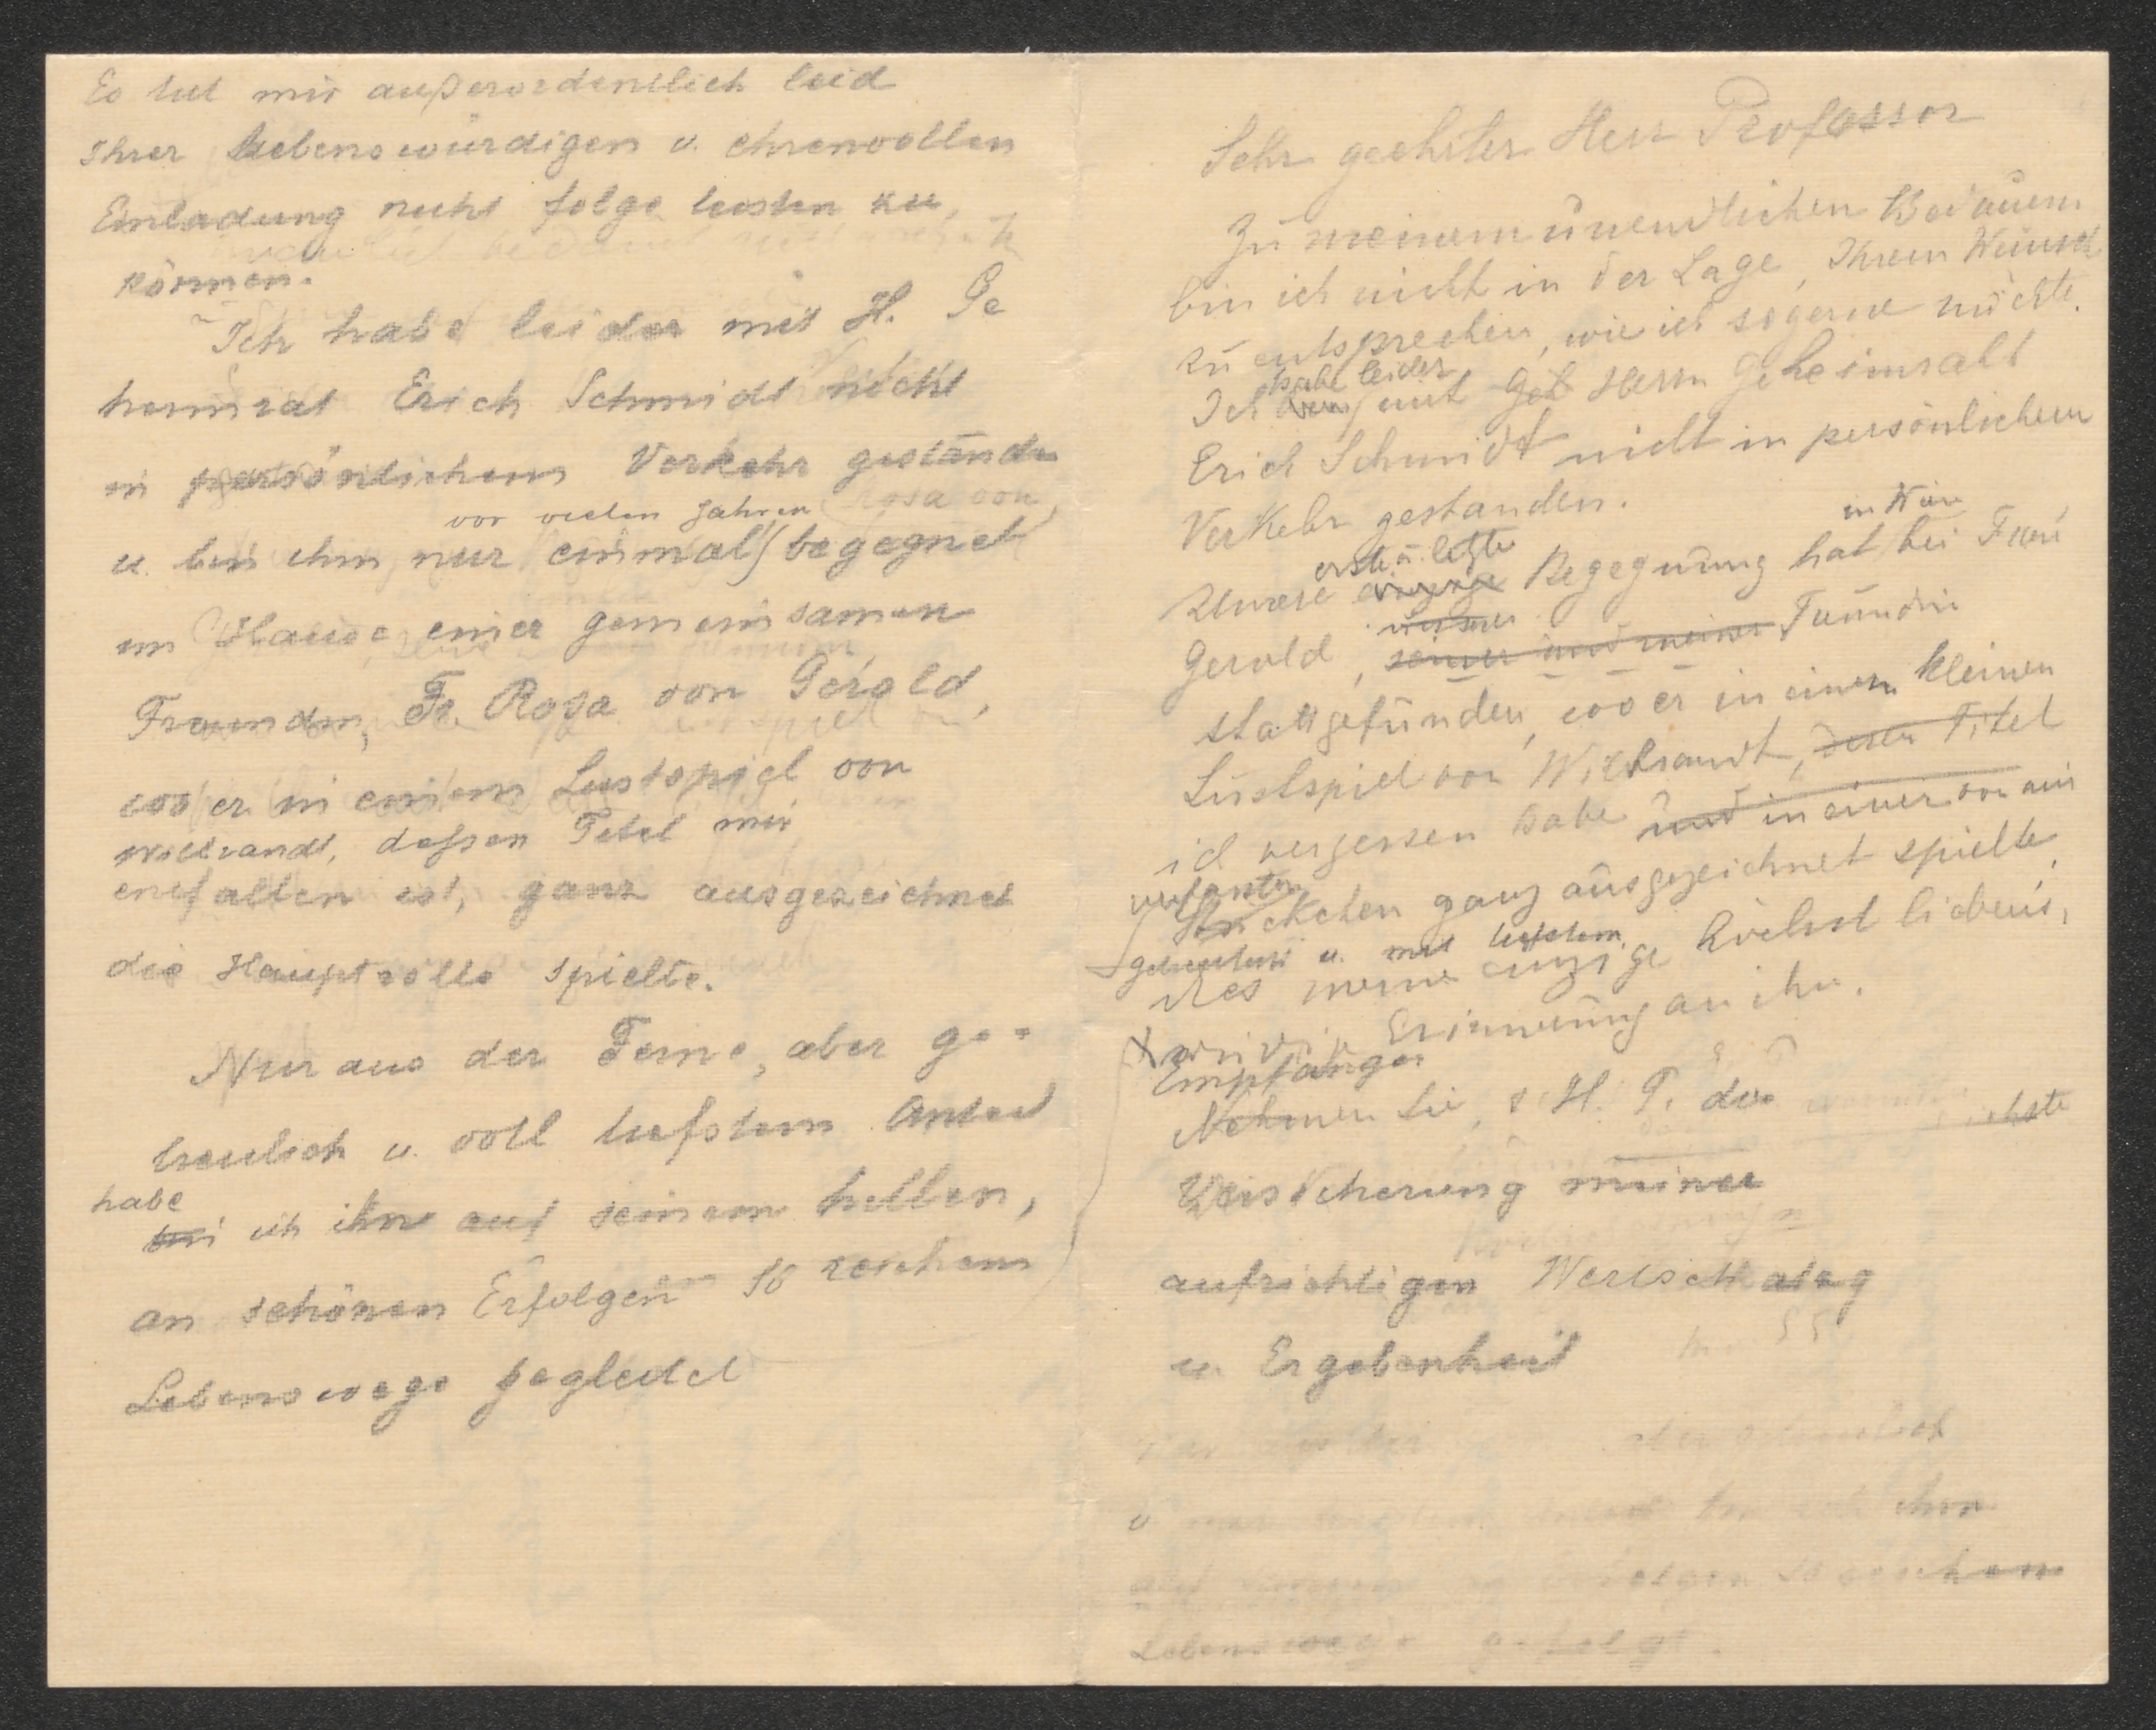 Es tut mir außerordentlich leid
Ihrer liebenswürdigen u. ehrenvollen
Einladung nicht folge leisten zu
können.
Ich habe leider mit H. Ge
heimrat Erich Schmidt nicht
in persönlichem Verkehr gestanden
vor vielen Jahren
u. bin ihm nur einmal begegnet
im Hause einer gemeinsamen
Freundin, Fr. Rosa von Gerold,
wo er in einem Lustspiel von
Wilbrandt, deßen Titel mir
entfallen ist, ganz ausgezeichnet
die Hauptrolle spielte.
Nur aus der Ferne, aber ge=
treulich u. voll tiefstem Anteil
habe
bin ich ihn auf seinem hellen,
an schönen Erfolgen so reichem
Lebenswege begleitet
Sehr geehrter Herr Professor
Zu meinem unendlichen Bedauern
bin ich nicht in der Lage, Ihrem Wunsch
zu entsprechen, wie ich so gerne möchte.
habe leider
Ich bin mit Geh Herrn Geheimratt
Erich Schmidt nicht in persönlichem
Verkehr gestanden.
in Wien
erste u. letzte
Unsere einzige Begegnung hat bei Frau
unserer
Gerold, seiner und meiner Freundin
stattgefunden, wo er in einem kleinen
Lustspiel von Wilbrandt, dessen Titel
ich vergessen habe und in einer von mir
verfassten
Stückchen ganz ausgezeichnet spielte.
getreulich u. mit tiefstem
Dies meine einzige höchst liebens,
Erinnerung an ihn.
Empfangen
Nehmen Sie, s. H. P. die
Versicherung meiner
aufrichtigen Wertschätzg
u. Ergebenheit
ihm
so reichem
Lebenswege gefolgt.